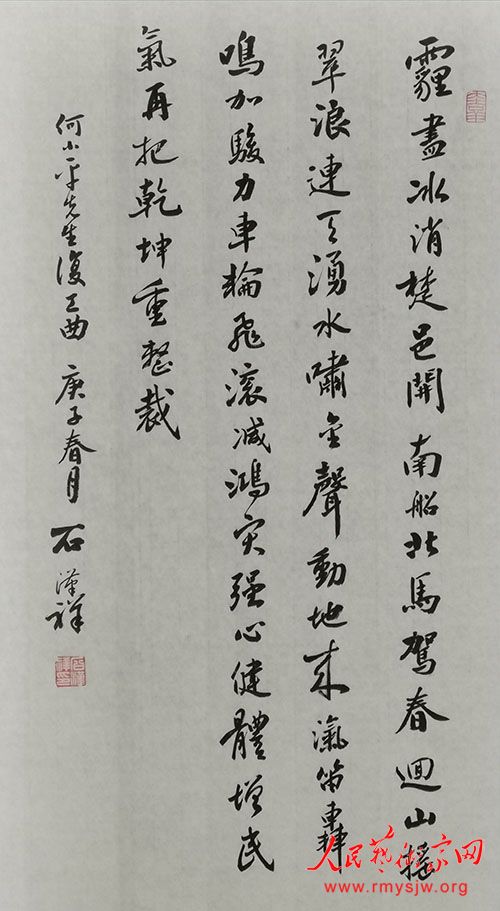 霾盡冰消楚邑開南船北馬駕春迴山摇
翠浪連天湧水嘯金聲動地來汽笛轟
鳴加駿力車輪飛滚减鴻灾强心健體增民
氣再把乾坤重整裁
何小平先生復工曲 庚子春月 石漢祥
人民艺术家网
www.rmysjw.org